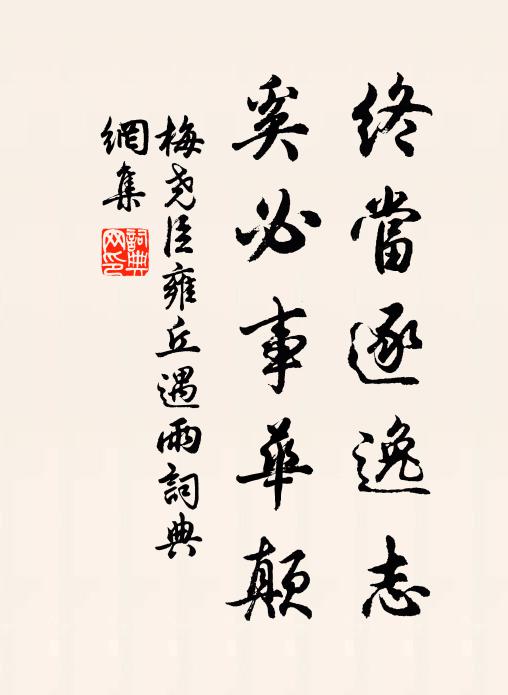 終當逐逸志
奚必事華顛
梅尧臣雍丘遇雨詞典
網集
詞典
网印